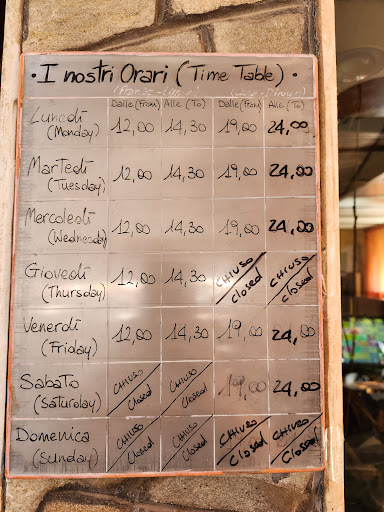 · I nostri Orari (Time Table) ·
Dalle (From) Alle (To) Dalle (From) Alle (To)
Lunedì
(Monday) 12,00 14,30 19,00 24,00
Martedì
(Tuesday) 12,00 14,30 19,00 24,00
Mercoledì
(Wednesday) 12,00 14,30 19,00 24,00
Giovedì
(Thursday) 12,00 14,30 CHIUSO Closed CHIUSO Closed
Venerdì
(Friday) 12,00 14,30 19,00 24,00
Sabato
(Saturday) CHIUSO Closed CHIUSO Closed 19,00 24,00
Domenica
(Sunday) CHIUSO Closed CHIUSO Closed CHIUSO Closed CHIUSO Closed